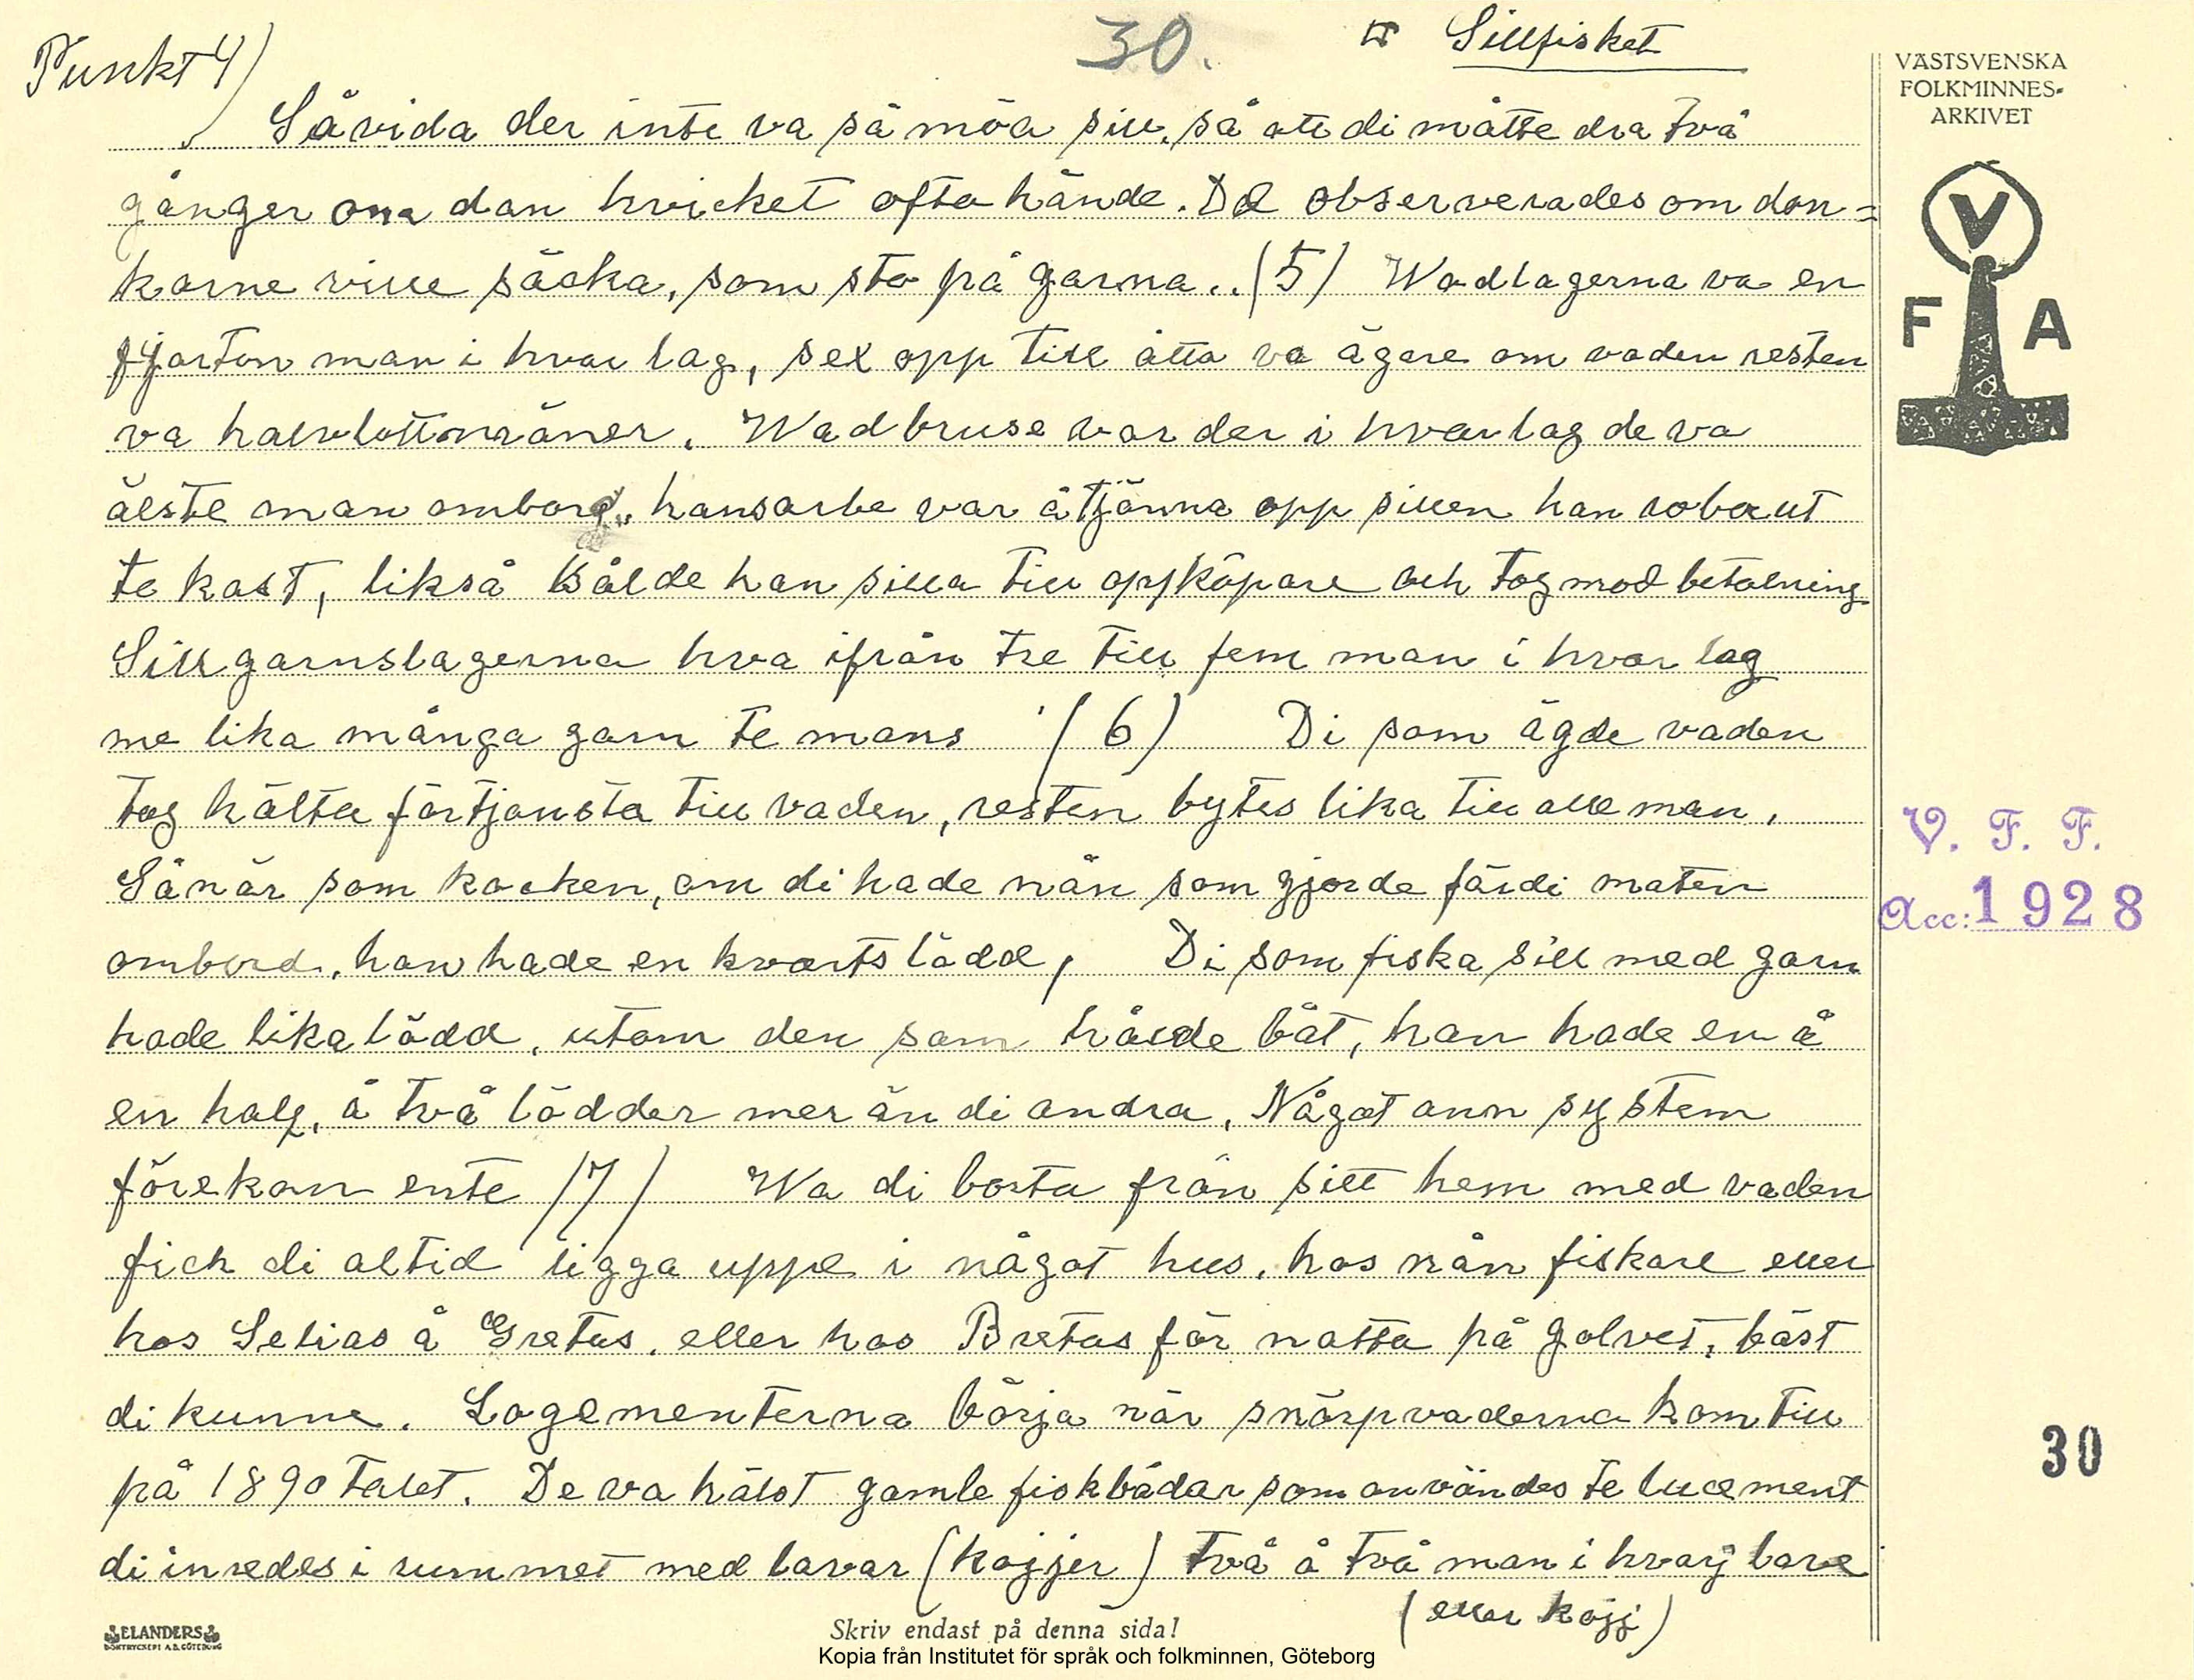 30.
Sillfisket
Punkt 4)
Såvida der inte va så möa sill, så att di måtte dra två
gånger om dan hvicket ofta hände. Då observerades om don=
karne ville säcka, som sto på garna.. (5) Wadlagerna va en
fjorton man i hvar lag, sex opp till åtta va ägare om vaden resten
va halvlottmäner. Wadbruse var der i hvar lag de va
älste man ombord, hans arbe var å tjänna opp sillen han roba ut
te kast, likså sålde han silla till oppköpare och tog mod betalning
Sillgarnslagerna hva ifrån tre till fem man i hvar lag
me lika många garn te mans (6) Di som ägde vaden
tog hälta förtjänsta till vaden, resten bytes lika till alle man,
Sånär som kocken, om di hade nån som gjorde färdi maten
ombord, han hade en kvarts lådd, Di som fiska sill med garn
hade lika lådd, utom den som hållde båt, han hade en å
en half, å två lådder mer än di andra, Något ann system
förekom ente (7) Wa di borta från sitt hem med vaden
fick di altid ligga uppe i något hus, hos nån fiskare eller
hos Selias å Gretas, eller hos Bretas för natta på golvet, bäst
di kunne. Logementerna börja när snörpvaderna kom till
på 1890 talet. De va hälst gamle fiskbådar som användes te lucement
di inredes i rummet med lavar (kojjer) två å två man i hvarj lave
(eller kojj)
VÄSTSVENSKA
FOLKMINNES-
ARKIVET
V
F A
V. F. F.
Acc: 1928
30
ELANDERS
BOKTRYCKERI A.B. GÖTEBORG
Skriv endast på denna sida!
Kopia från Institutet för språk och folkminnen, Göteborg